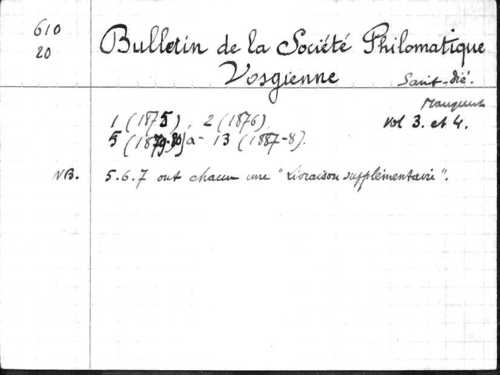 610
20
Bulletin de la Société Philomatique
Vosgienne
Saint-Dié.
Manquent
vol 3. et 4.
1 (1875), 2 (1876)
5 (1879-80) à - 13 (1887-8).
NB. 5.6.7 ont chacun une "Livraison supplémentaire".